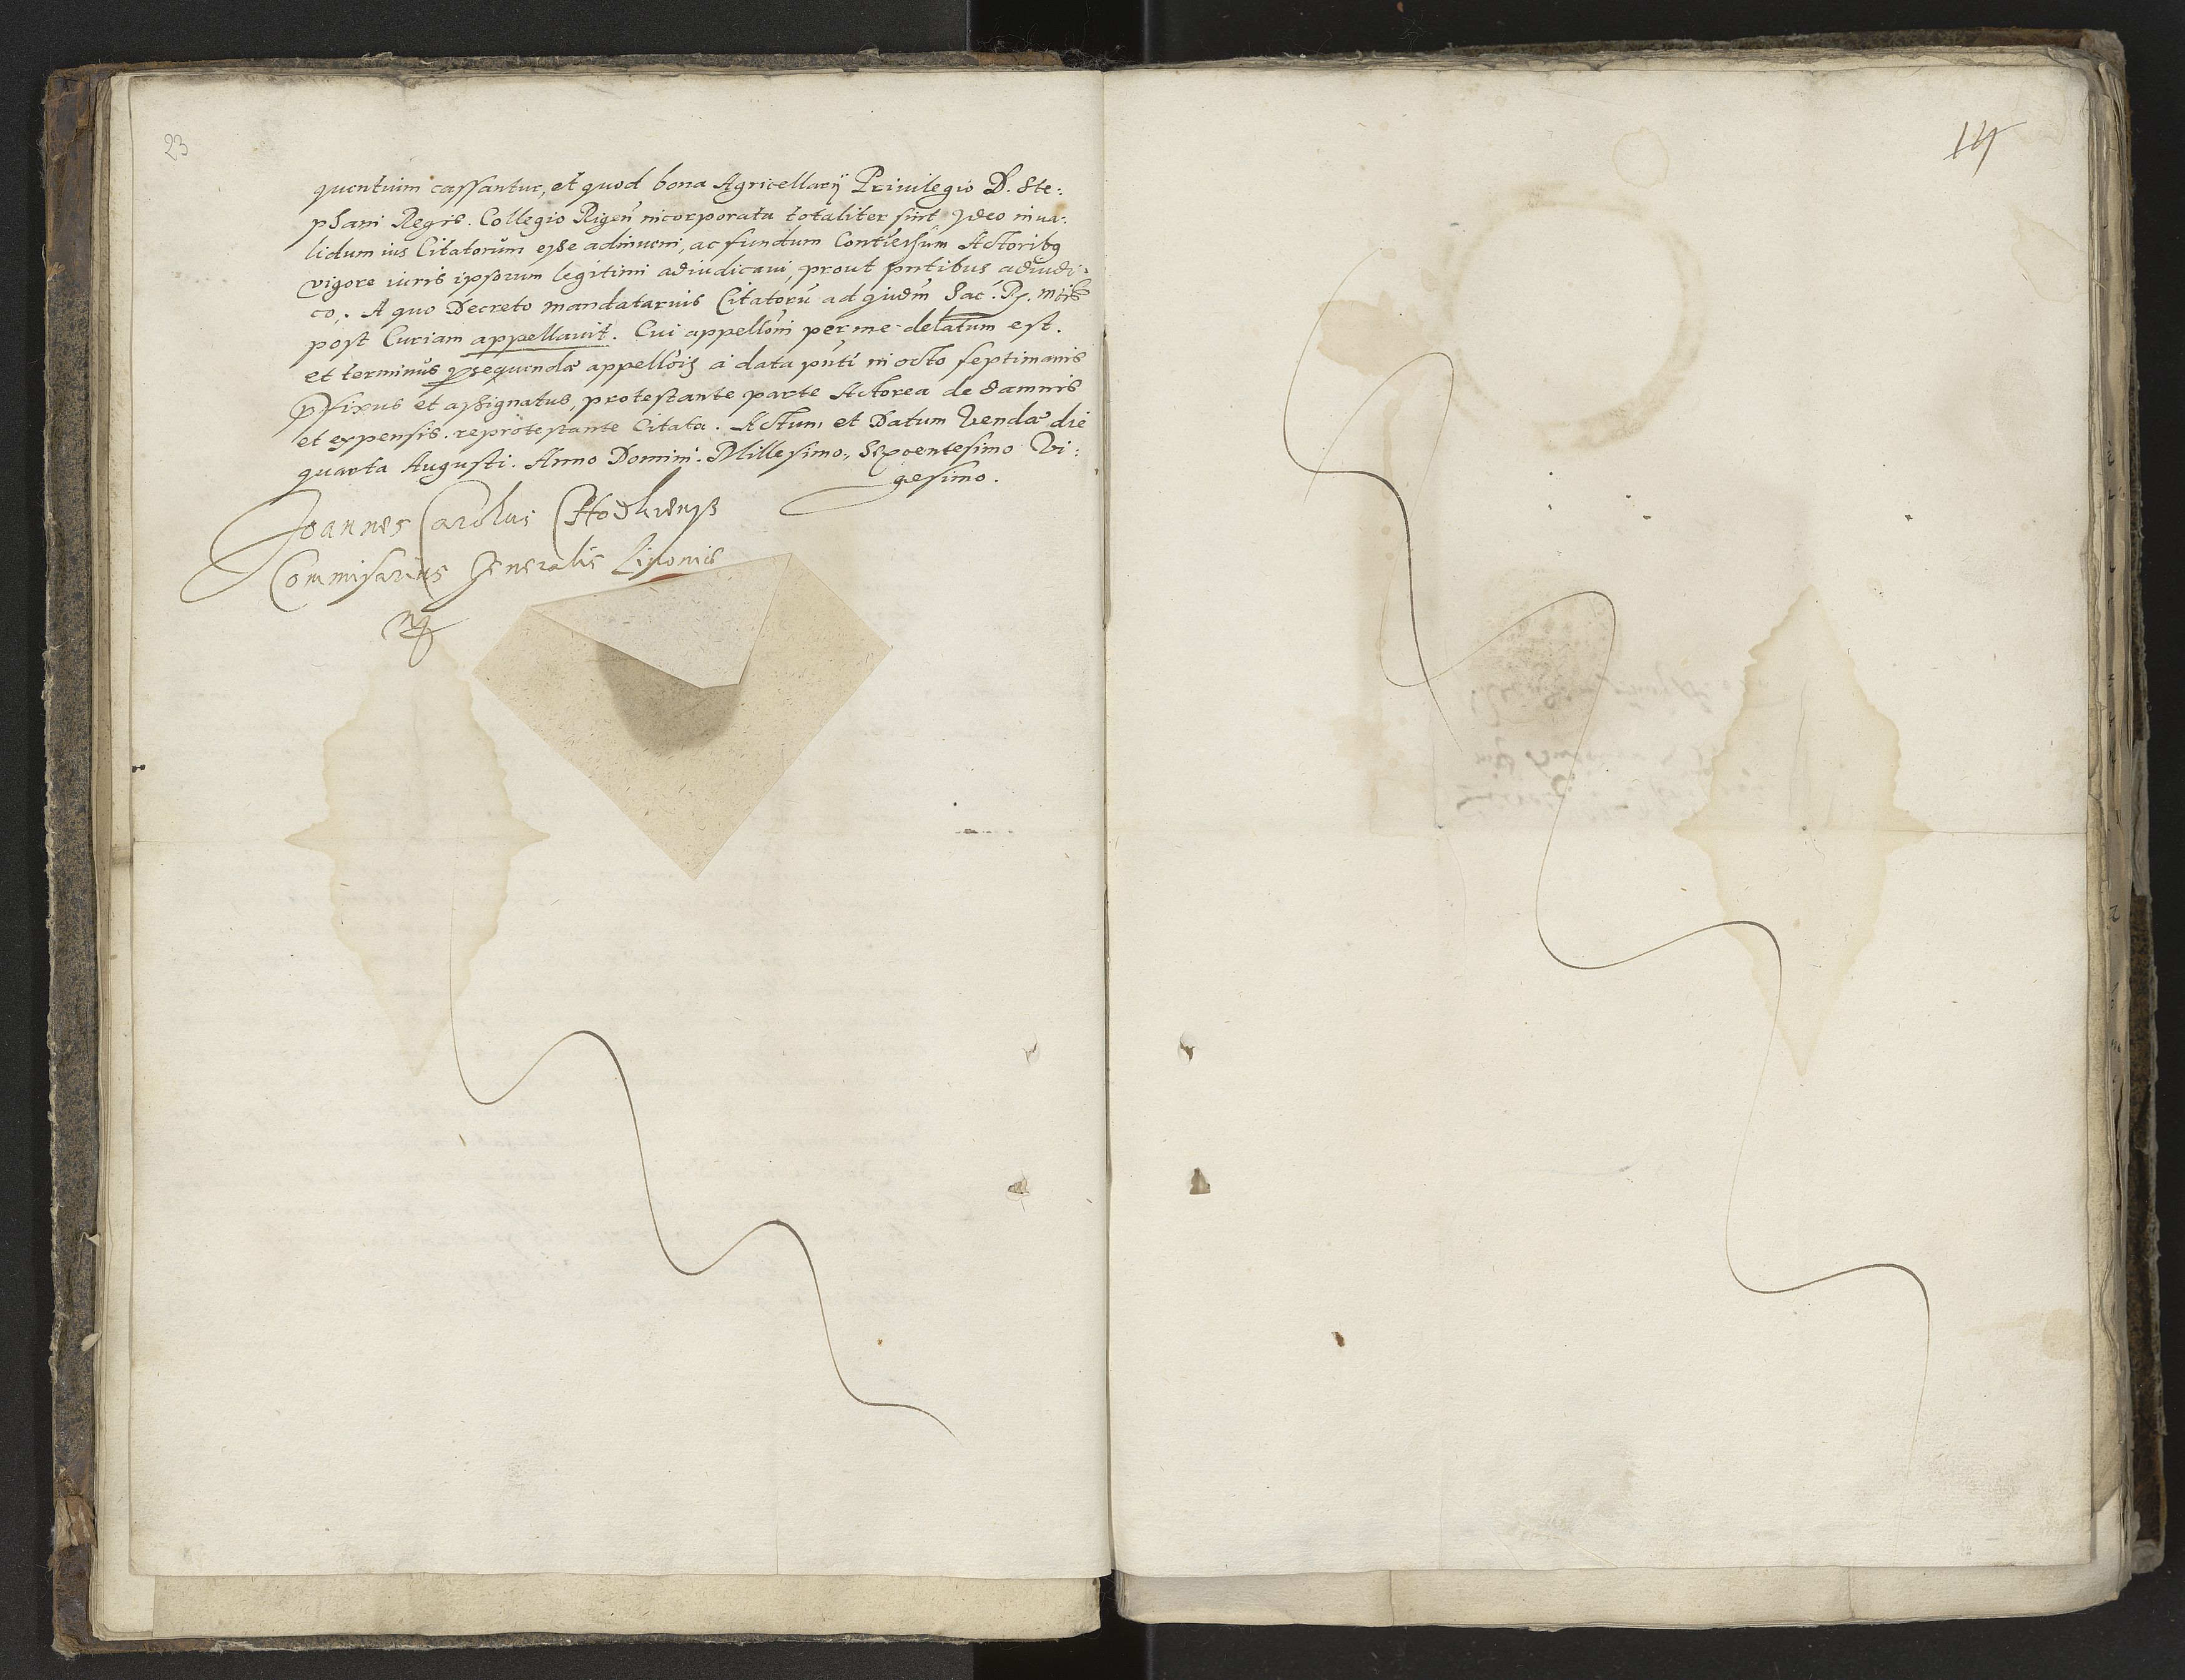 23
quentium cassantur, et quod bona Agricellarij Privilegio D. Ste:
phani Regis. Collegio Rigen̄ incorporata totaliter sint ideo inva:
lidum ius Citatorum esse adinveni, ac fundum Contiersum Actoribq
vigore iuris ipsorum legitimi adiudicavi, prout pñtibus adiudi:
co. A quo Decreto mandatarius Citatorū ad Sac. R. Mtis
post Curiam appellavit. Cui appellōni per me delatum est.
et terminus psequendæ appellōis à data pñti in octo septimanis
pfixus et assignatus, protestante parte Actorea de damnis
et expensis. reprotestante Citata. Actum et Datum Vendæ die
quarta Augusti. Anno Domini. Millesimo, Sexcentesimo Vi:
gesimo.
Joannes Carolus
Commisarius Generalis Livonie
14